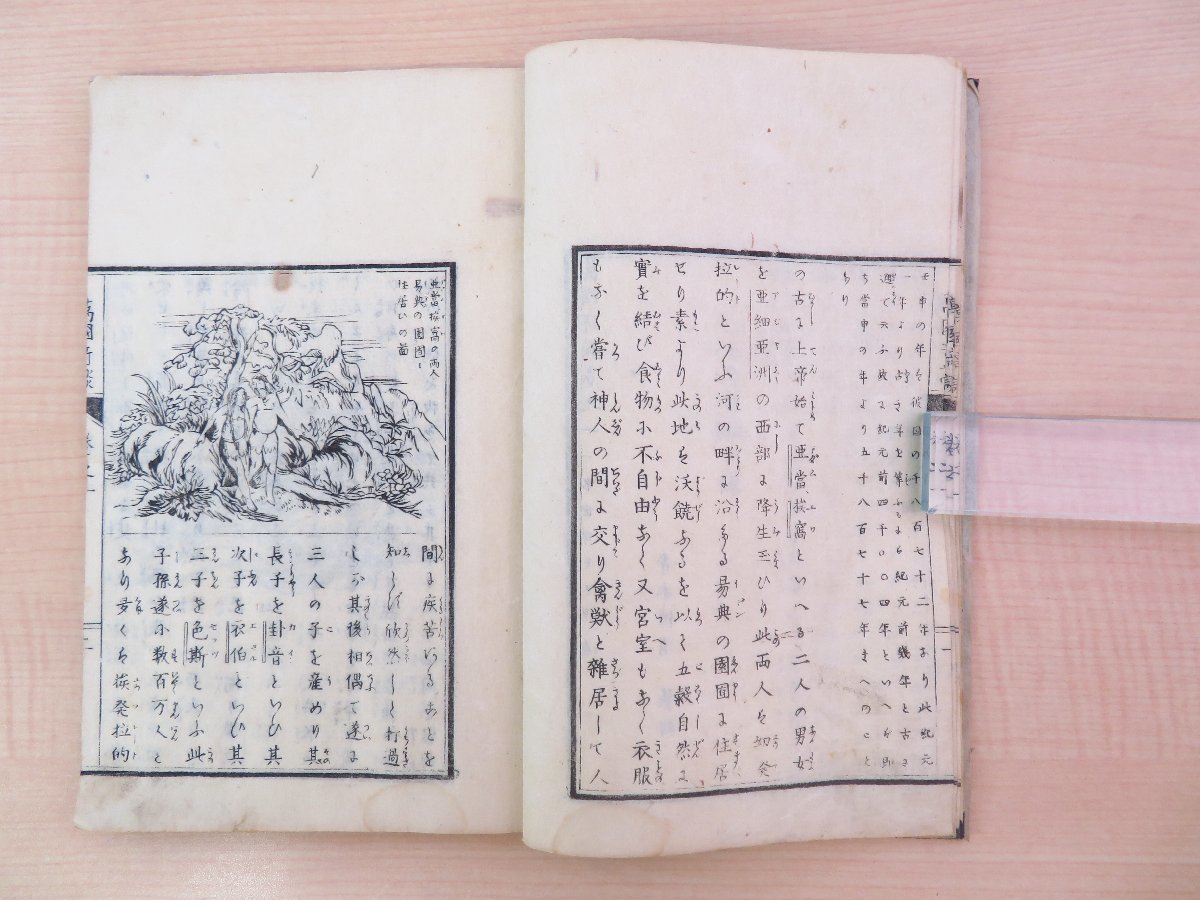 壬申の年は彼国の千八百七十二年なり此紀元
一年より古き年を算ふるにも紀元前幾年と古に
遡て云ふ故に紀元前四千〇〇四年といへば即
ち当申の年より五千八百七十七年まへのこと
なり
の古に上帝始て亜當、挨窩といへる二人の男女
を亜細亜洲の西部に降生玉ひり此両人は細発
拉的といふ河の畔に沿たる易典の園囿に住居
せり素より此地は沃饒なるを以て五穀自然に
實を結び食物に不自由なく又宮室もなく衣服
もなく嘗て神人の間に交り禽獣と雑居して人
亜當挨窩の両人
易典の園囿に
住居ひの圖
間に疾苦いるあとを
知らず欣然として打過
しが其後相偶て遂に
三人の子を産めり其
長子を卦音といひ其
次子を衣伯といひ其
三子を色斯といふ此
子孫遂に数百万人と
なり多くは挨発拉的
萬國新歴